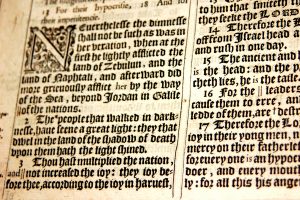 1 For their hypocrisie, 18 And for
their impenitencie.
Neuerthelesse the dimnesse
shall not be such as was in
her vexation, when at the
first he lightly afflicted the
land of Zebulun, and the
land of Naphtali, and afterward did
more grieuously afflict her by the way
of the Sea, beyond Jordan in Galile
of the nations.
2 The people that walked in dark-
nesse, haue seene a great light: they that
dwel in the land of the shadow of death
vpon them hath the light shined.
3 Thou hast multiplied the nation,
and not increased the ioy: they ioy be-
fore thee, according to the ioy in haruest,
to that
they seeke the LORD
14 Therefore the
off from Israel head a
and rush in one day.
15 The ancient and
is the head: and the p
cheth lies, he is the taile
16 For the leaders
cause them to erre, and
ledde of them, are destr
17 Therefore the LOR
ioy in their yong men, n
mercy on their fatherle
for euery one is an hypoc
doer, and euery mouth
ly: for all this his anger